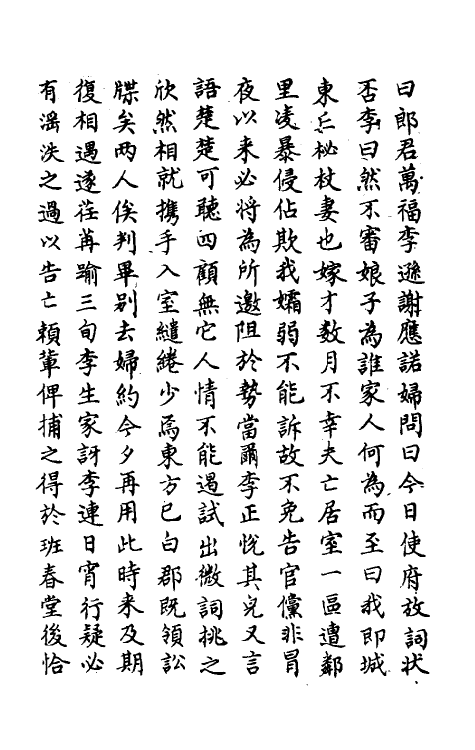 曰郎君萬福李遜謝應諾婦問曰今日使府放詞狀
否李曰然不審娘子為誰家人何為而至曰我即城
東丘秘杖妻也嫁才数月不幸夫亡居室一區遭鄰
里凌暴侵佔欺我孀弱不能訴故不免告官儻非冒
夜以来必将為所邀阻於勢當爾李正恱其皃又言
語楚楚可聽四顧無它人情不能遏試出微詞挑之
欣然相就携手入室繾綣少焉東方已白郡既領訟
牒矣兩人俟判畢别去婦約今夕再用此時来及期
復相遇遂荏苒踰三旬李生家訝李連日宵行疑必
有滛泆之過以告亡頼輩俾捕之得於班春堂後恰